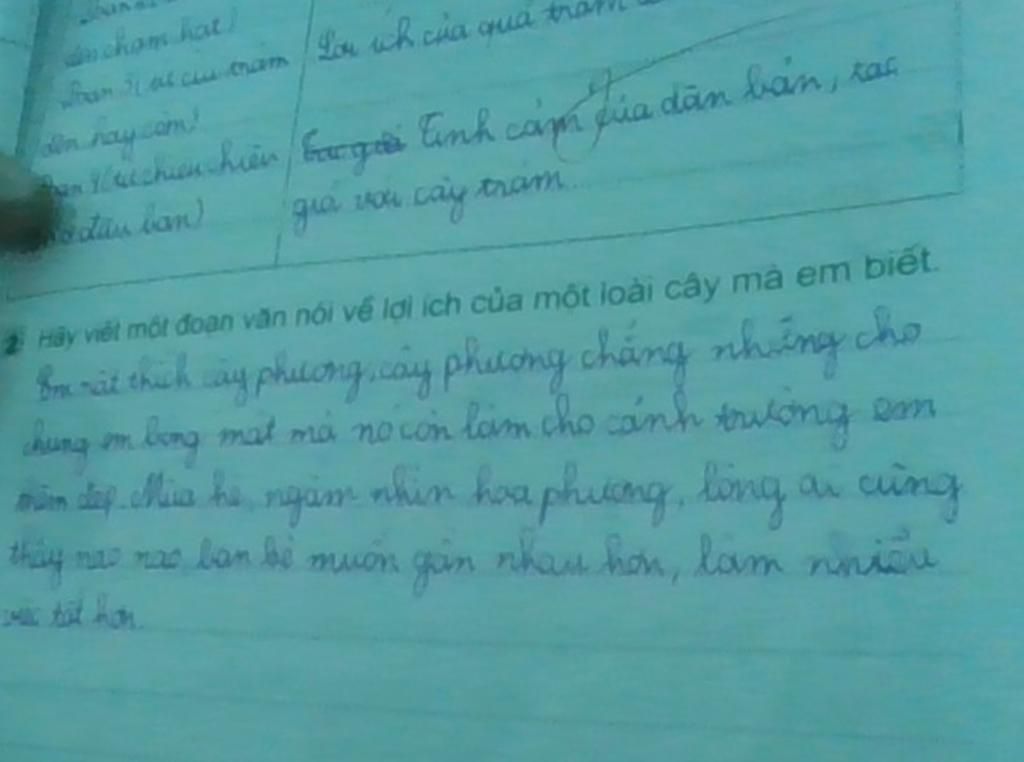 chạm hạt)
Lợi ích của quả trám
Đoạn 3( từ cùi trám
đen hay cốm)
Đoạn 4( từ chiều chiều
đầu bản)
Tình cảm của dân bản, tác
giả với cây trám
2 Hãy viết một đoạn văn nói về lợi ích của một loài cây mà em biết.
Em rất thích cây phượng, cây phượng chẳng những cho
chúng em bóng mát mà nó còn làm cho cảnh trường em
thêm đẹp. Mùa hè, ngắm nhìn hoa phượng, lòng ai cũng
thấy nao nao bạn bè muốn gần nhau hơn, làm nhiều
việc tốt hơn.